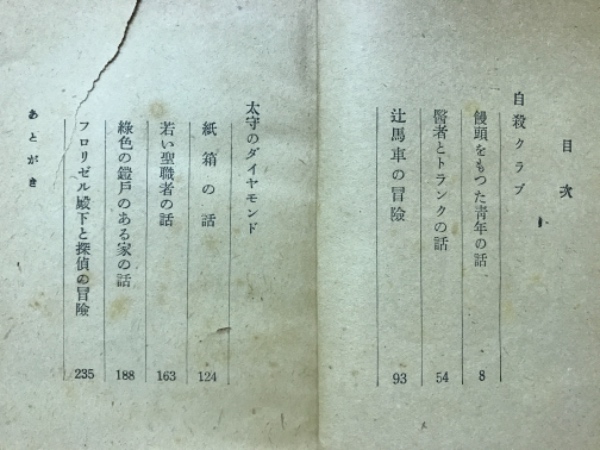 目次
自殺クラブ
饅頭をもつた青年の話 8
醫者とトランクの話 54
辻馬車の冒險 93
太守のダイヤモンド
紙箱の話 124
若い聖職者の話 163
綠色の鎧戸のある家の話 188
フロリゼル殿下と探偵の冒險 235
あとがき